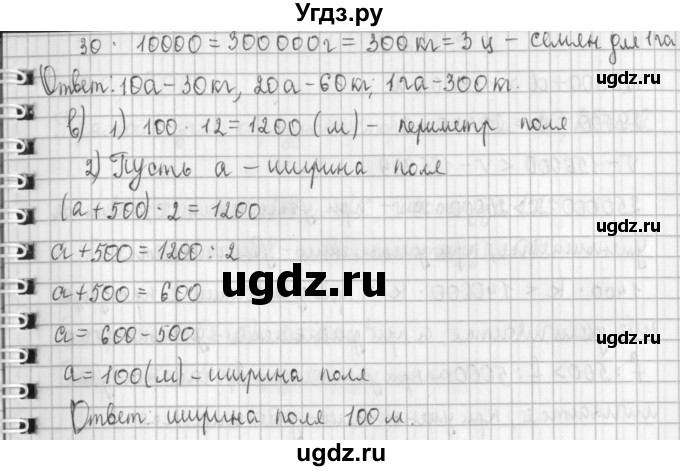 Угдз.ру
30 · 10000 = 300 000 г = 300 кг = 3 ц – семян для 1 га
Ответ: 10а – 30 кг, 20а – 60 кг, 1га – 300 кг.
в) 1) 100 · 12 = 1200 (м) – периметр поля
2) Пусть а – ширина поля
(а + 500) · 2 = 1200
а + 500 = 1200 : 2
а + 500 = 600
а = 600 – 500
а = 100 (м) – ширина поля
Ответ: ширина поля 100 м.
ugdz.ru
ugdz.ru
ugdz.ru
ugdz.ru
ugdz.ru
ugdz.ru
ugdz.ru